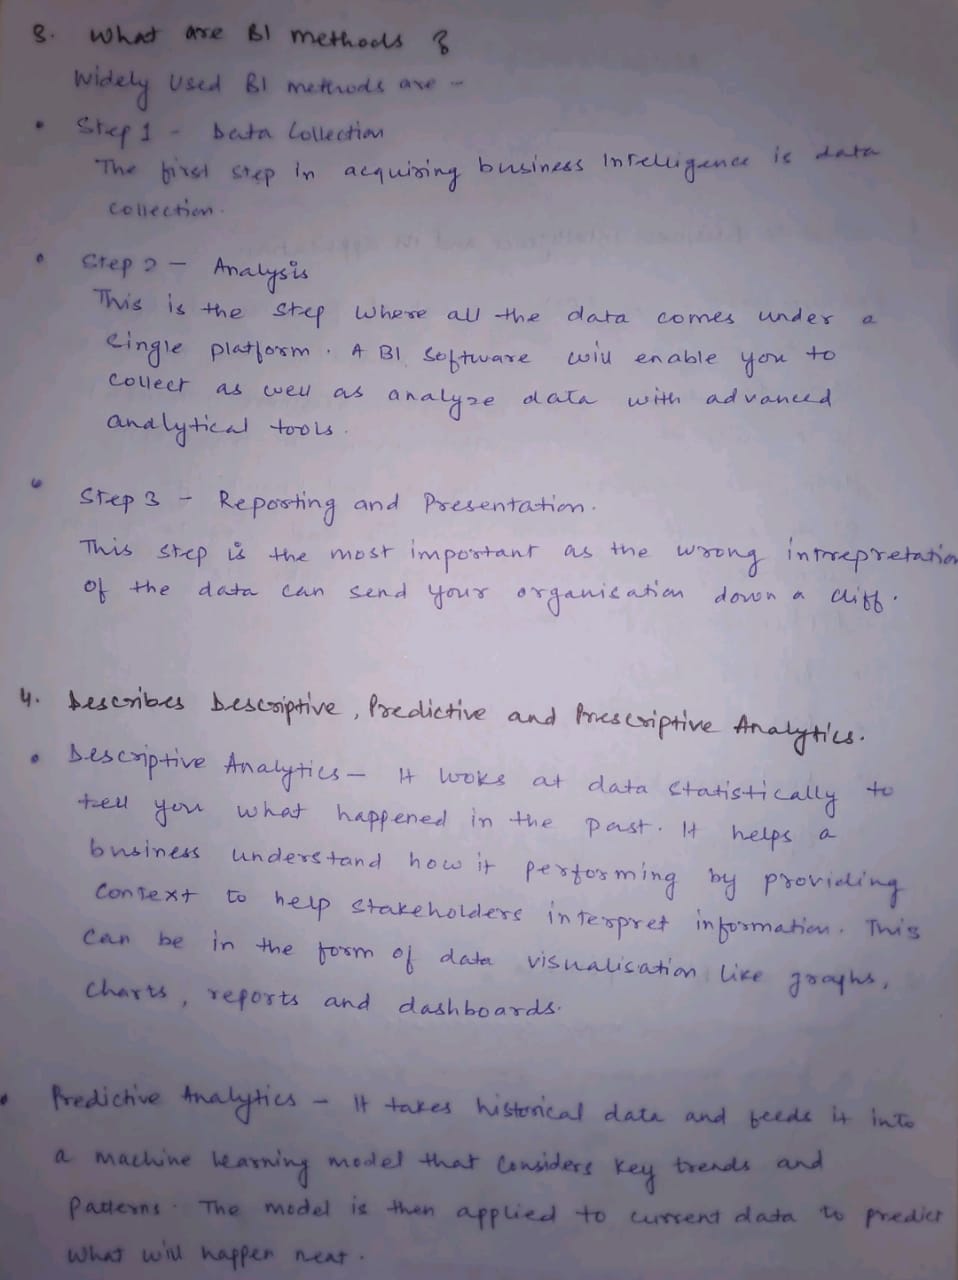 3. What are BI methods ?
Widely Used BI methods are -
• Step 1 - Data Collection
The first step in acquiring business Intelligence is data
collection.
• Step 2 - Analysis
This is the step where all the data comes under a
single platform. A BI software will enable you to
collect as well as analyze data with advanced
analytical tools.
• Step 3 - Reporting and Presentation.
This step is the most important as the wrong intrepretation
of the data can send your organisation down a cliff.
4. Describes Descriptive, Predictive and Prescriptive Analytics.
• Descriptive Analytics - It looks at data statistically to
tell you what happened in the past. It helps a
business understand how it performing by providing
context to help stakeholders interpret information. This
can be in the form of data visualisation like graphs,
charts, reports and dashboards.
• Predictive Analytics - It takes historical data and feeds it into
a machine learning model that considers key trends and
patterns. The model is then applied to current data to predict
what will happen next.